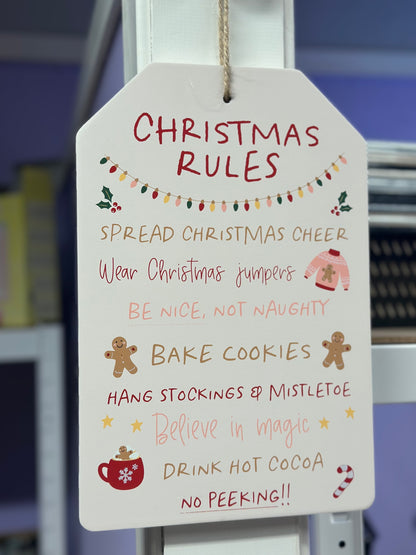 CHRISTMAS
RULES
SPREAD CHRISTMAS CHEER
Wear Christmas jumpers
BE NICE, NOT NAUGHTY
BAKE COOKIES
HANG STOCKINGS & MISTLETOE
Believe in magic
DRINK HOT COCOA
NO PEEKING!!